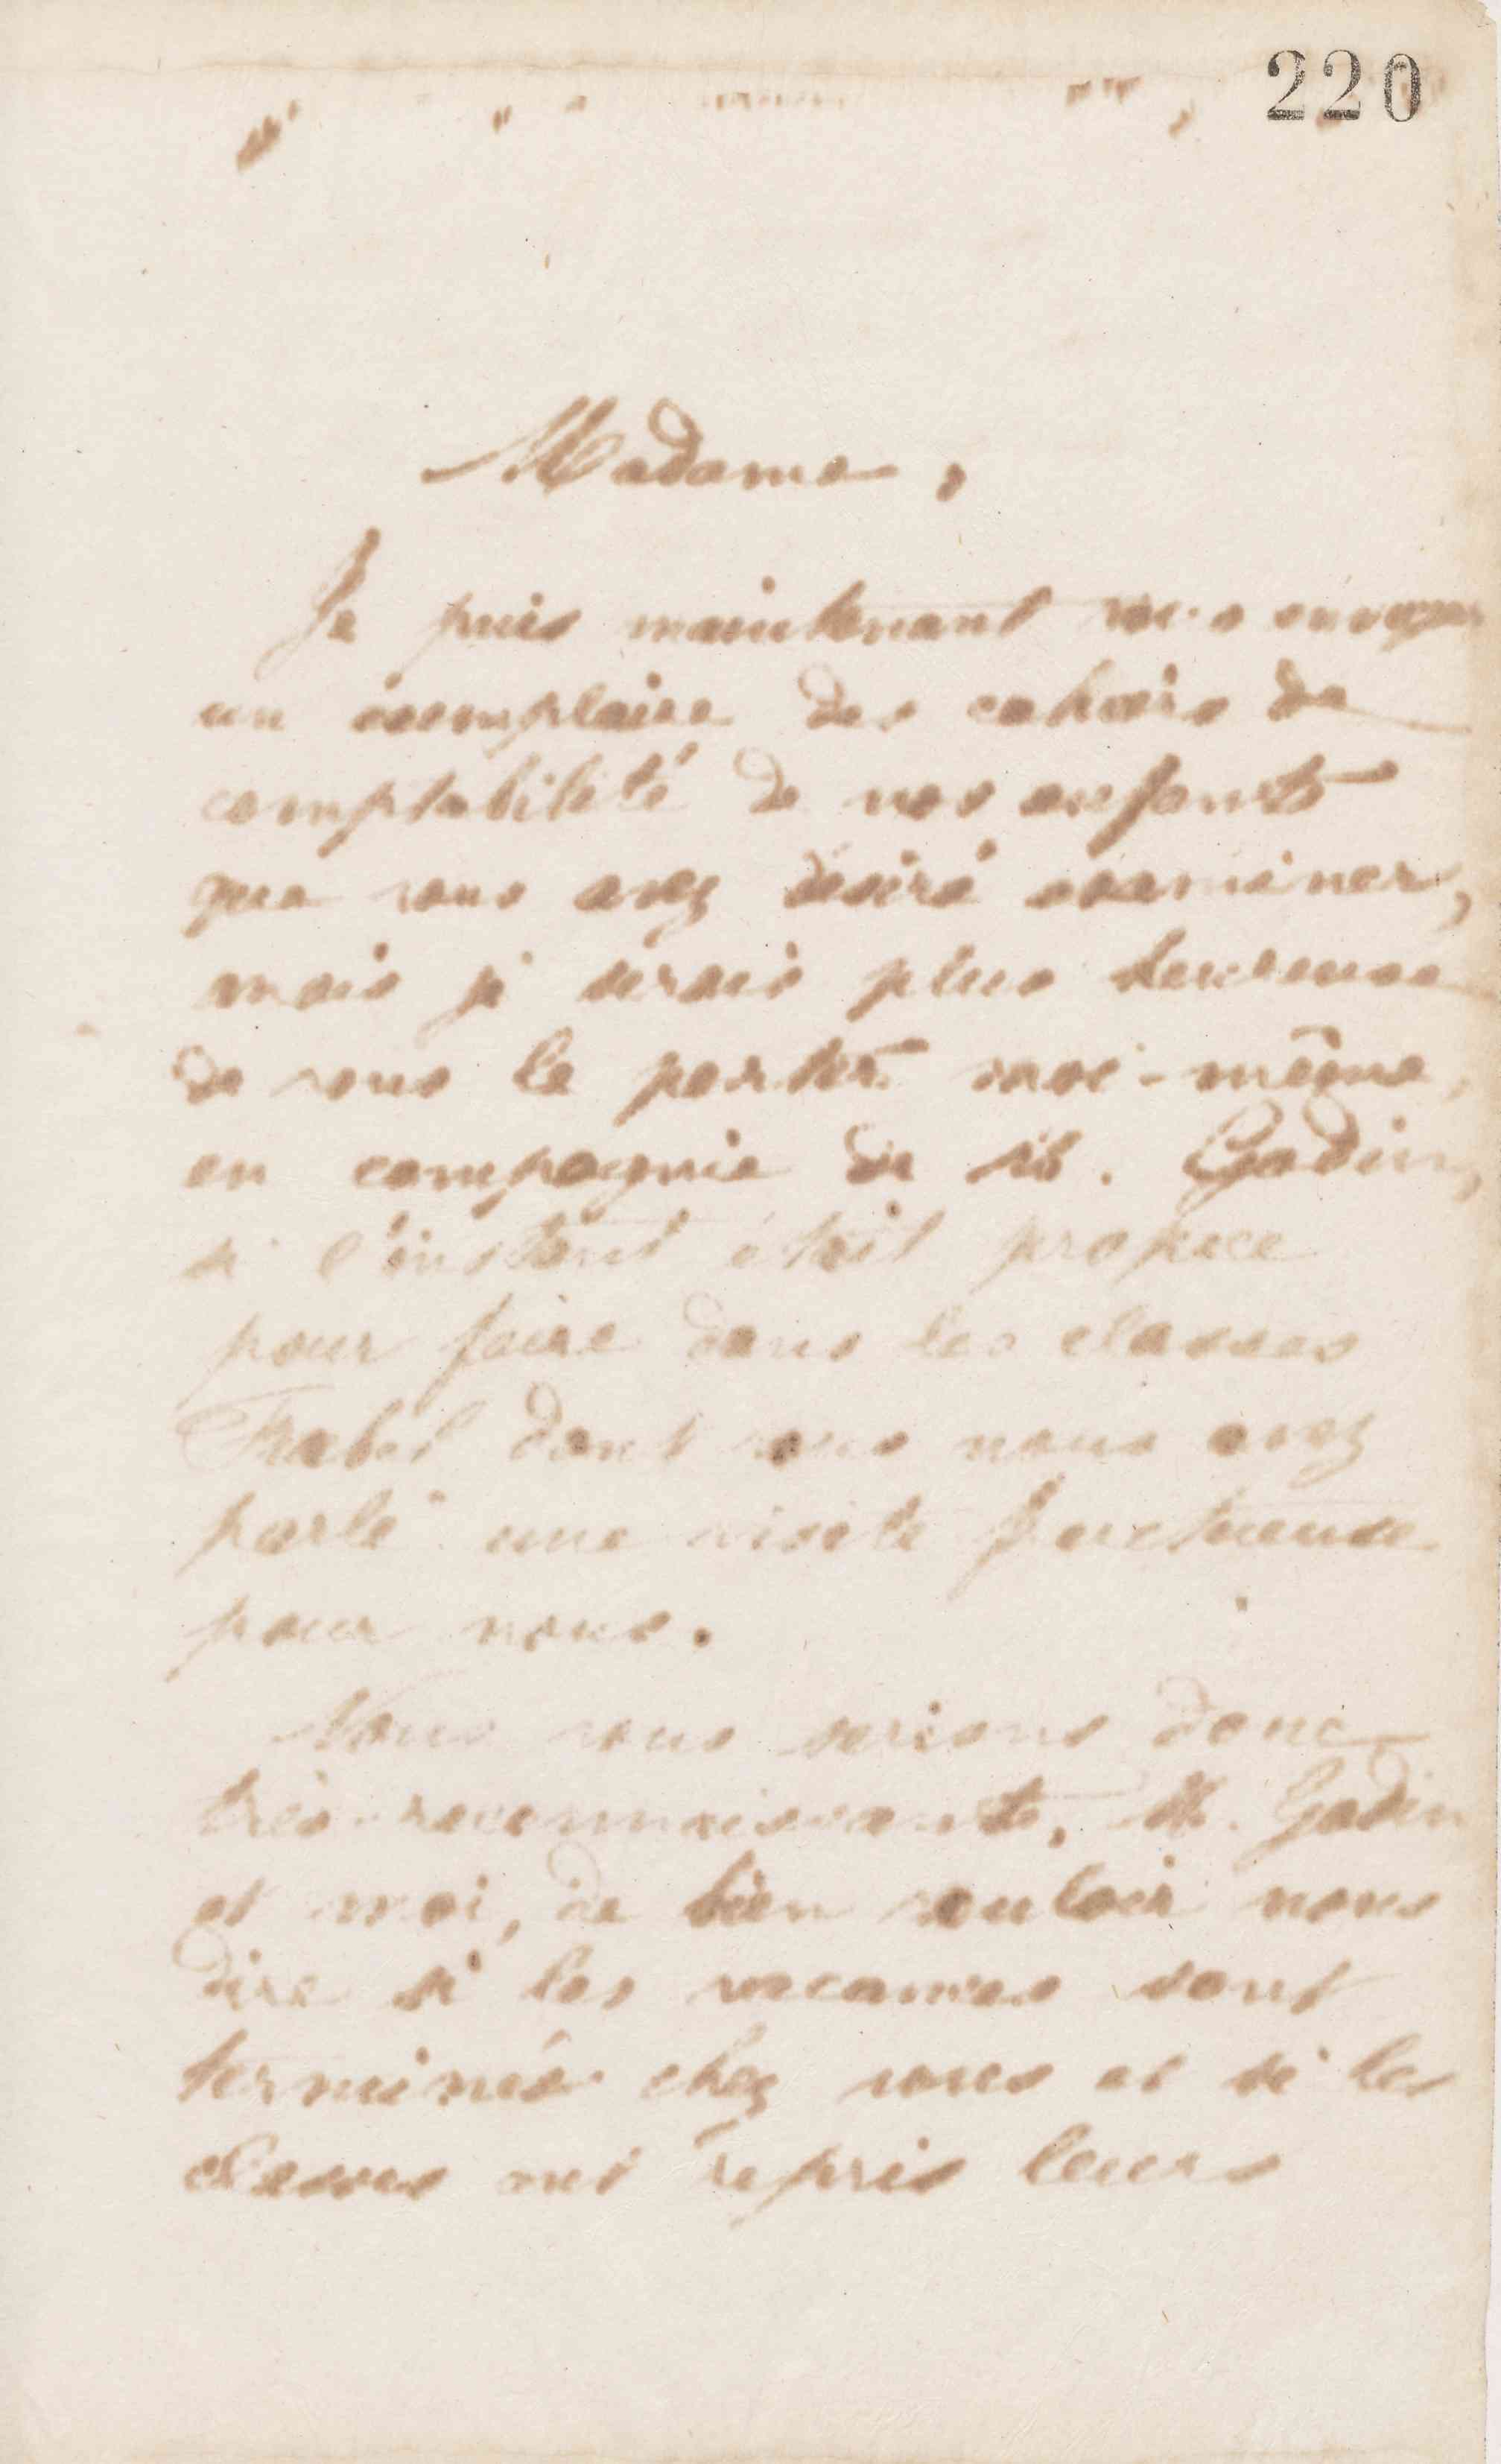 220
Madame,
Je puis maintenant vous envoyer
un exemplaire des cahiers de
comptabilité de nos enfants
que vous avez désiré examiner,
mais je serais plus heureuse
de vous le porter moi-même,
en compagnie de M. Godin,
si l'instant était propice
pour faire dans les classes
Frœbel dont vous nous avez
parlé une visite fructueuse
pour nous.
Nous vous serions donc
très-reconnaissants, M. Godin
et moi, de bien vouloir nous
dire si les vacances sont
terminées chez vous et si les
classes ont repris leurs